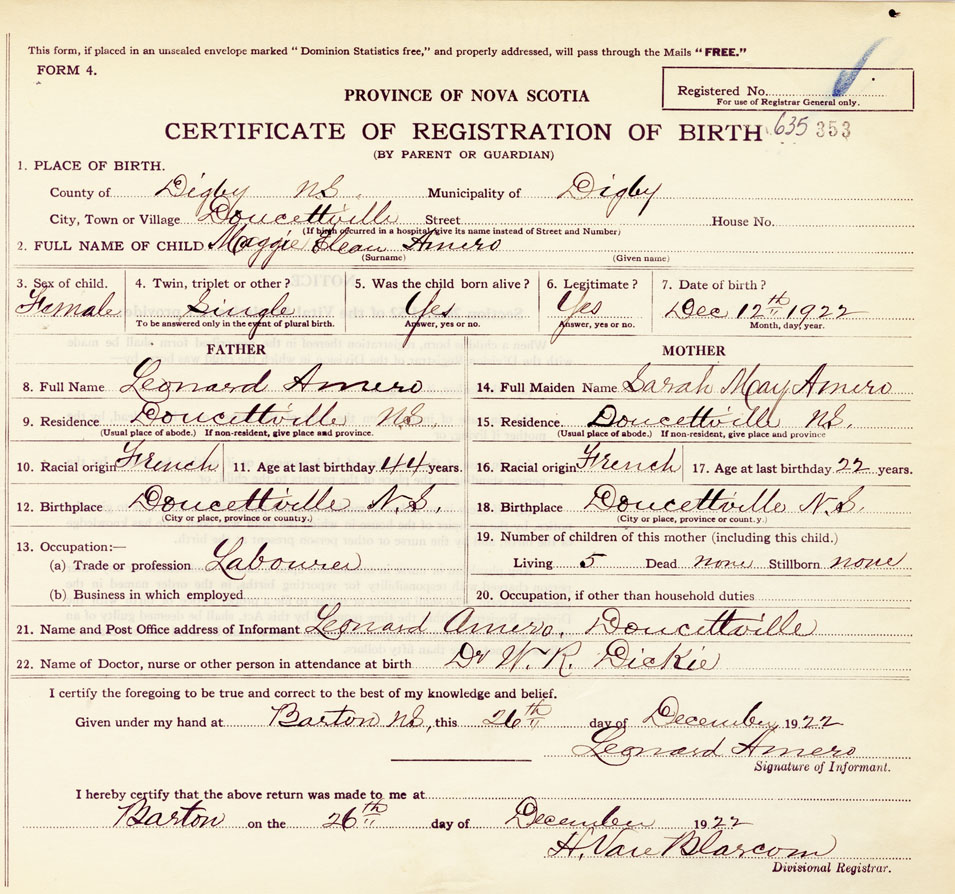 This form, if placed in an unsealed envelope marked "Dominion Statistics free," and properly addressed, will pass through the Mails "FREE."
FORM 4.
Registered No.
For use of Registrar General only.
PROVINCE OF NOVA SCOTIA
CERTIFICATE OF REGISTRATION OF BIRTH 635 353
(BY PARENT OR GUARDIAN)
1. PLACE OF BIRTH.
County of Digby NS. Municipality of Digby
City, Town or Village Doucettville Street House No.
(If birth occurred in a hospital give its name instead of Street and Number)
2. FULL NAME OF CHILD Maggie Amero
(Surname) (Given name)
3. Sex of child. 4. Twin, triplet or other? 5. Was the child born alive? 6. Legitimate? 7. Date of birth?
Female Single Yes Yes Dec 12th 1922
To be answered only in the event of plural birth. Answer, yes or no. Answer, yes or no. Month, day, year.
FATHER MOTHER
8. Full Name Leonard Amero 14. Full Maiden Name Sarah May Amero
9. Residence Doucettville NS. 15. Residence Doucettville NS.
(Usual place of abode.) If non-resident, give place and province. (Usual place of abode.) If non-resident, give place and province
10. Racial origin French 11. Age at last birthday 44 years. 16. Racial origin French 17. Age at last birthday 22 years.
12. Birthplace Doucettville N.S. 18. Birthplace Doucettville N.S.
(City or place, province or country.) (City or place, province or country.)
13. Occupation:— 19. Number of children of this mother (including this child.)
(a) Trade or profession Labourer Living 5 Dead none Stillborn none
(b) Business in which employed 20. Occupation, if other than household duties
21. Name and Post Office address of Informant Leonard Amero, Doucettville
22. Name of Doctor, nurse or other person in attendance at birth Dr W. R. Dickie
I certify the foregoing to be true and correct to the best of my knowledge and belief.
Given under my hand at Barton NS, this 26th day of December 1922
Leonard Amero
Signature of Informant.
I hereby certify that the above return was made to me at
Barton on the 26th day of December 1922
H. Van Blarcom
Divisional Registrar.